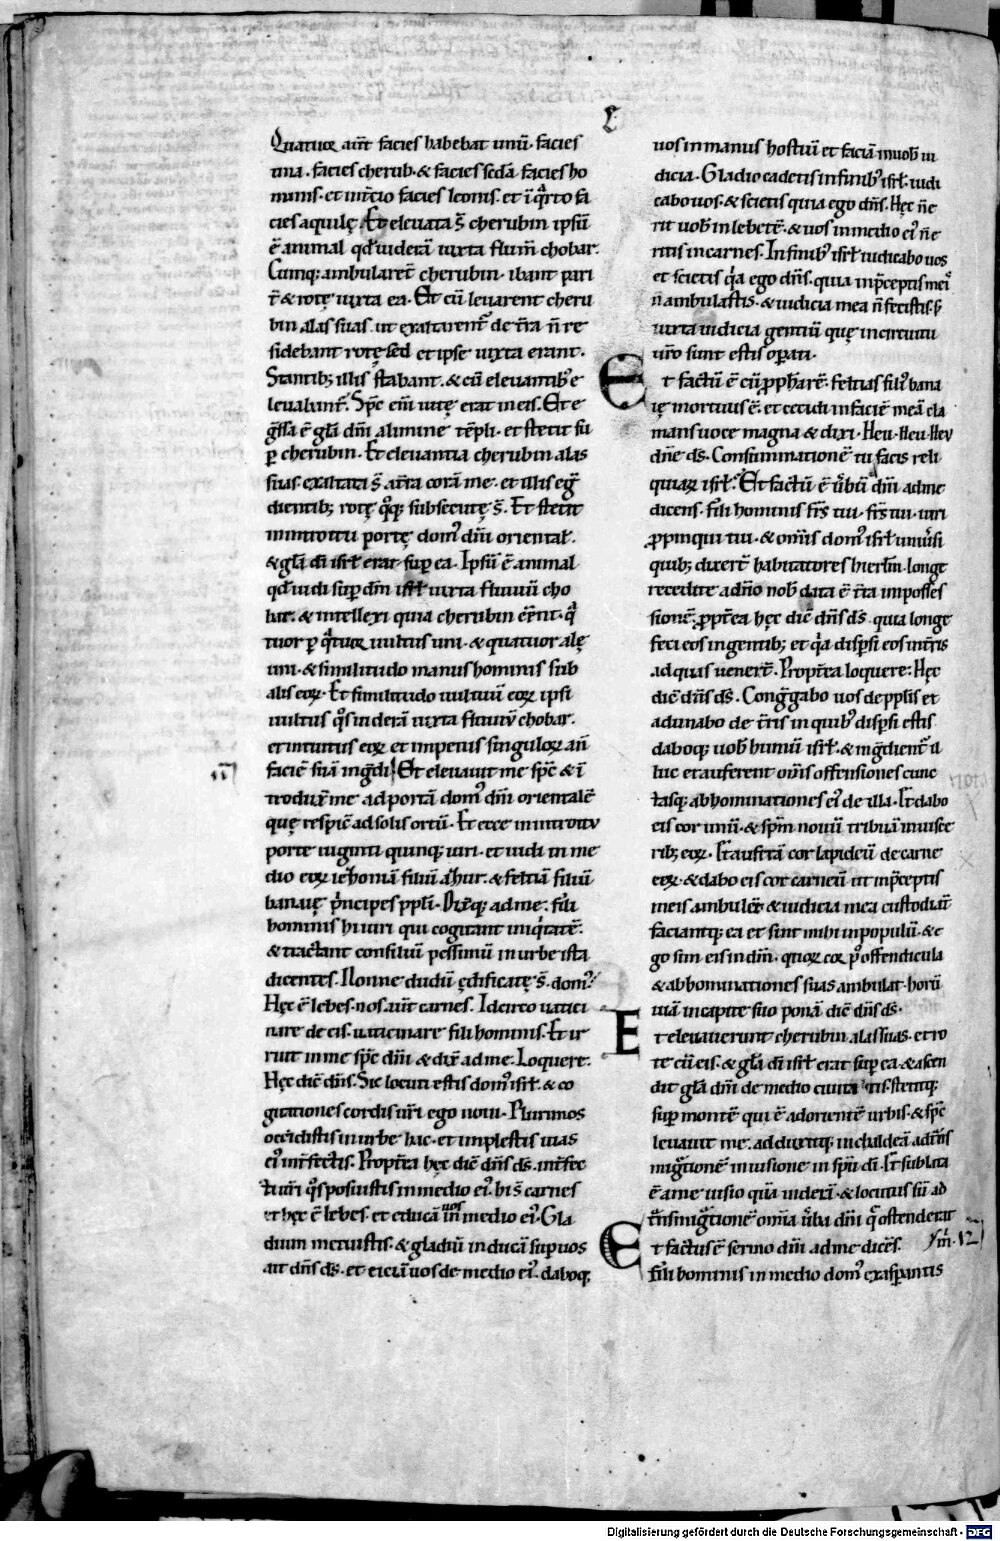 L
Quatuor aut̄ facies habebat unū. facies
una. facies cherub. & facies sc̄da facies ho
minis. et in t̄cio facies leonis. et ī q̊rto fa
cies aquilę. Et eleuata s̄ cherubin ipsū
ē animal qd̄ uiderā iuxta flum̄ chobar.
Cumq; ambularent̄ cherubin. ibant pari
t̄ & rotę iuxta ea. Et cū leuarent cheru
bin alas suas. ut exaltarent᷑ de t̄ra n̄ re
sidebant rotę sed et ipse iuxta erant.
Stantib; illis stabant. & cū eleuantib᷒ e
leuabant᷑. Spc̄ eni᷒ uitę erat in eis. Et e
gr̄ssa ē gl̄a dn̄i a limine tēpli. et stetit su
ꝑ cherubin. Et eleuantia cherubin alas
suas. exaltata s̄ a t̄ra corā me. et illis egr̄
dientib; rotę q̊q; subsecutę s̄. Et stetit
in introitu portę dom᷒ dn̄i oriental̄.
& gl̄a dī isrl̄ erat sup ea. Ipsū ē animal
qd̄ uidi sup dm̄ isrl̄ iuxta fluuiū cho
bar. & intellexi quia cherubin eēnt. q̊
tuor ꝑ q̊tuor uultus uni. & quatuor alę
uni. & similitudo manus hominis sub
alis eoꝝ. Et similitudo uultuū eoꝝ ipsi
uultus q̊s uiderā iuxta fluuiū chobar.
et intuitus eoꝝ et impetus singuloꝝ an̄
faciē suā ingr̄di. Et eleuauit me spc̄ & ī
trodux̄ me ad portā dom᷒ dn̄i orientalē
quę respic̄ ad solis ortū. Et ecce in introitu
porte uiginti quinq; uiri. et uidi in me
dio eoꝝ iechoniā filiū ahur. & feltiā filiū
banaię p̊ncipes ppl̄i. Dix̄q; ad me. fili
hominis hi uiri qui cogitant iniq̊tatē.
& tractant consiliū pessimū in urbe ista
dicentes. Nonne dudū ędificatę s̄ dom᷒.
Hęc ē lebes. nos aut̄ carnes. Idcirco uatici
nare de eis. uaticinare fili hominis. Et ir
ruit in me spc̄ dn̄i & dix̄ ad me. Loquere.
Hęc dic̄ dn̄s. Sic locuti estis dom᷒ isrl̄. & co
gitationes cordis ur̄i ego noui. Plurimos
occidistis in urbe hac. et implestis uias
ei᷒ int̄fectis. Propt̄ea hęc dic̄ dn̄s ds̄. int̄fec
ti ur̄i q̊s posuistis in medio ei᷒. hi s̄ carnes
et hęc ē lebes. et educā uos in medio ei᷒. Gla
dium metuistis. & gladiū inducā sup uos
ait dn̄s ds̄. et eiciā uos de medio ei᷒. daboq;
uos in manus hostiū et faciā in uob̄ iu
dicia. Gladio cadetis in finib᷒ isrl̄. iudi
cabo uos. & scietis quia ego dn̄s. Hęc n̄ e
rit uob̄ in lebetē. & uos in medio ei᷒ n̄ e
ritis in carnes. In finib᷒ isrl̄ iudicabo uos
et scietis q̊a ego dn̄s. quia in p̄ceptis meis
n̄ ambulastis. & iudicia mea n̄ fecistis. s̄
iuxta iudicia gentiū quę in circuitu
ur̄o sunt estis oꝑati.
Et factū ē cū ꝓph̄arē. feltias fili᷒ bana
ię mortuus ē. et cecidi in faciē meā cla
mans uoce magna & dixi. Heu. Heu. Heu
dn̄e ds̄. Consummationē tu facis reli
quiaꝝ isrl̄. Et factū ē ūbū dn̄i ad me
dicens. fili hominis fr̄s tui. fr̄s tui. uiri
ꝓpinqui tui. & om̄is dom᷒ isrl̄ uniūsi
quib; dixer̄t habitatores hierlm̄. longe
recedite a dn̄o nob̄ data ē t̄ra in posses
sionē. ꝓpt̄ea hęc dic̄ dn̄s ds̄. quia longe
feci eos in gentib; et q̊a dispsi eos in t̄ris
ad quas uener̄t. Propt̄ea loquere. Hęc
dic̄ dn̄s ds̄. Congr̄gabo uos de ppl̄is et
adunabo de t̄ris in quib᷒ dispsi estis
daboq; uob̄ humū isrl̄. & ingr̄dient᷑ il
luc et auferent om̄s offensiones cunc
tasq; abhominationes ei᷒ de illa. Et dabo
eis cor unū. & spm̄ nouū tribuā in uisce
rib; eoꝝ. Et auferā cor lapideū de carne
eoꝝ. & dabo eis cor carneū ut in p̄ceptis
meis ambulent & iudicia mea custodiāt
faciantq; ea et sint mihi in populū. & e
go sim eis in dm̄. quoꝝ cor p᷒ offendicula
& abhominationes suas ambulat. horū
uiā in capite suo ponā dic̄ dn̄s ds̄.
Et eleuauerunt cherubin alas suas. et ro
te cū eis. & gl̄a dī isrl̄ erat sup ea. & ascen
dit gl̄a dn̄i de medio ciuitatis. stetitq;
sup montē qui ē ad orientē urbis. & spc̄
leuauit me. adduxitq; in chaldeā ad t̄ns
migr̄tionē in uisione in spū dī. Et sublata
ē a me uisio quā uiderā. & locutus sū ad
t̄nsmigr̄tionē om̄ia ūba dn̄i q̄ ostenderat
Et factus ē sermo dn̄i ad me dicēs. 12
fili hominis in medio dom᷒ exaspantis
Digitalisierung gefördert durch die Deutsche Forschungsgemeinschaft - DFG